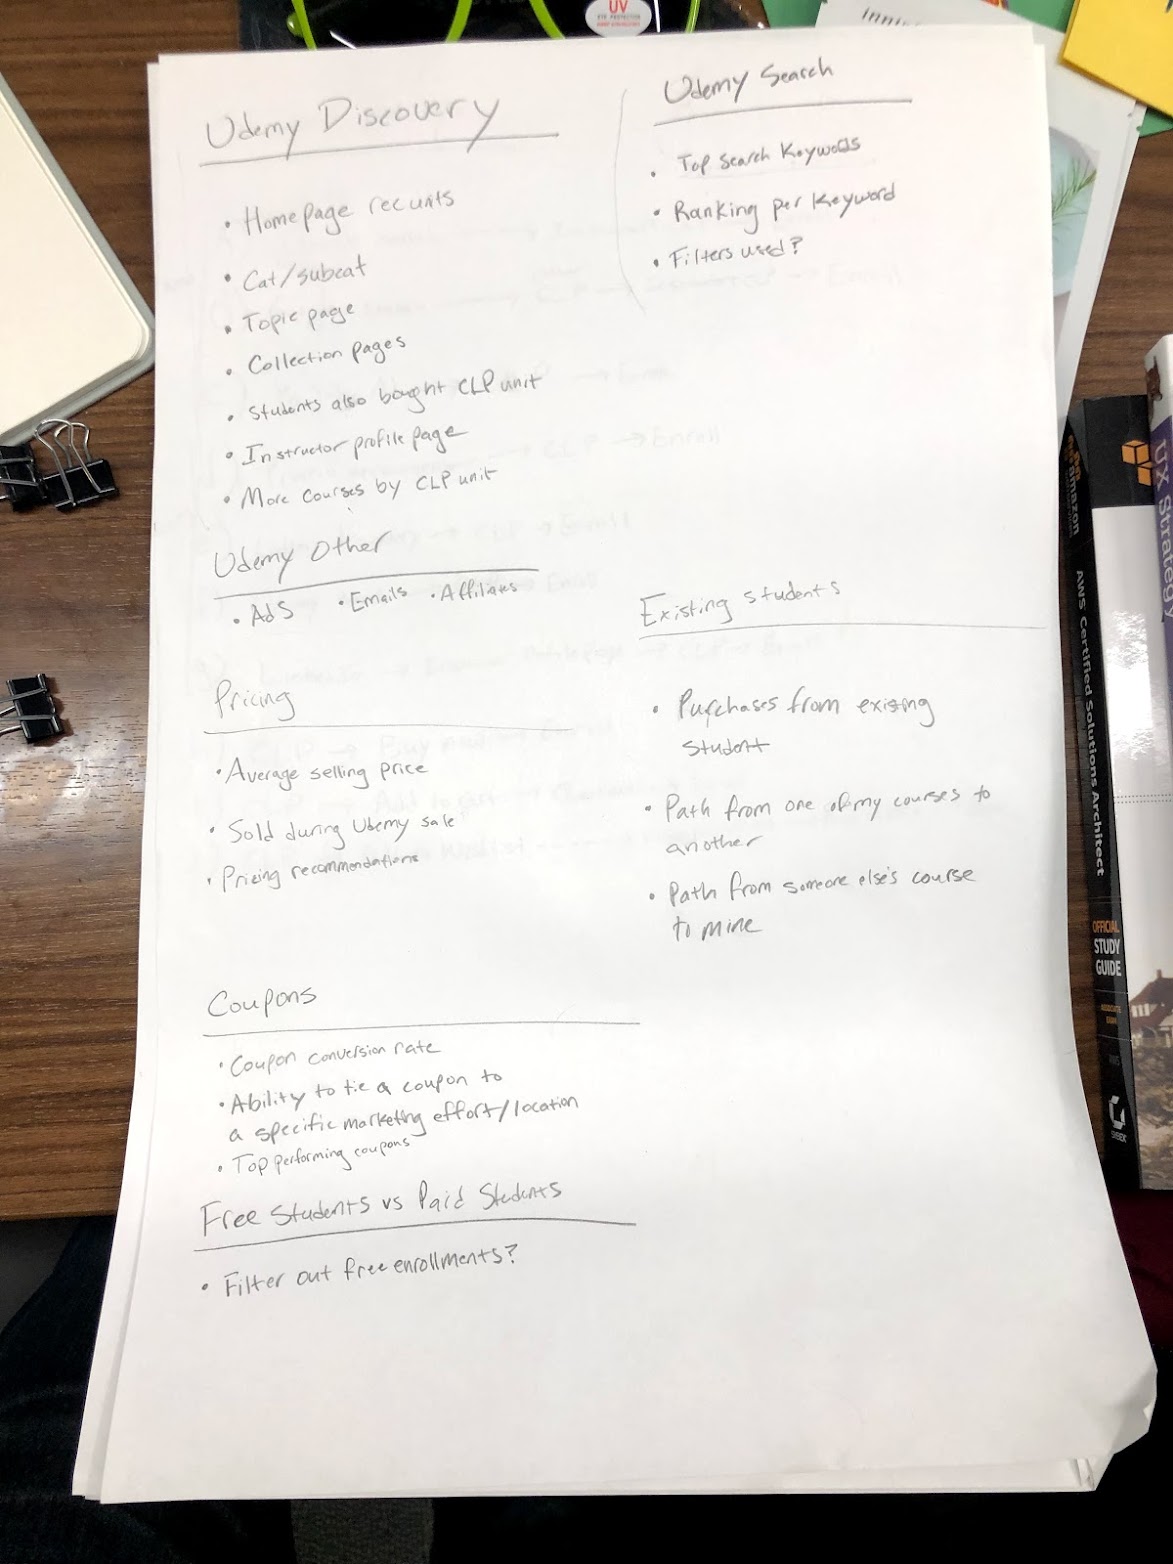 UV
EYE PROTECTION
Udemy Discovery
• Homepage rec units
• Cat/subcat
• Topic page
• Collection pages
• Students also bought CLP unit
• Instructor profile page
• More courses by CLP unit
Udemy Search
• Top Search Keywords
• Ranking per Keyword
• Filters used?
Udemy Other
• Ads • Emails • Affiliates
Pricing
• Average selling price
• Sold during Udemy sale
• Pricing recommendations
Existing students
• Purchases from existing
student
• Path from one of my courses to
another
• Path from someone else's course
to mine
Coupons
• Coupon conversion rate
• Ability to tie a coupon to
a specific marketing effort/location
• Top performing coupons
Free Students vs Paid Students
• Filter out free enrollments?
amazon
AWS Certified Solutions Architect
OFFICIAL
STUDY
GUIDE
SYBEX
UX Strategy